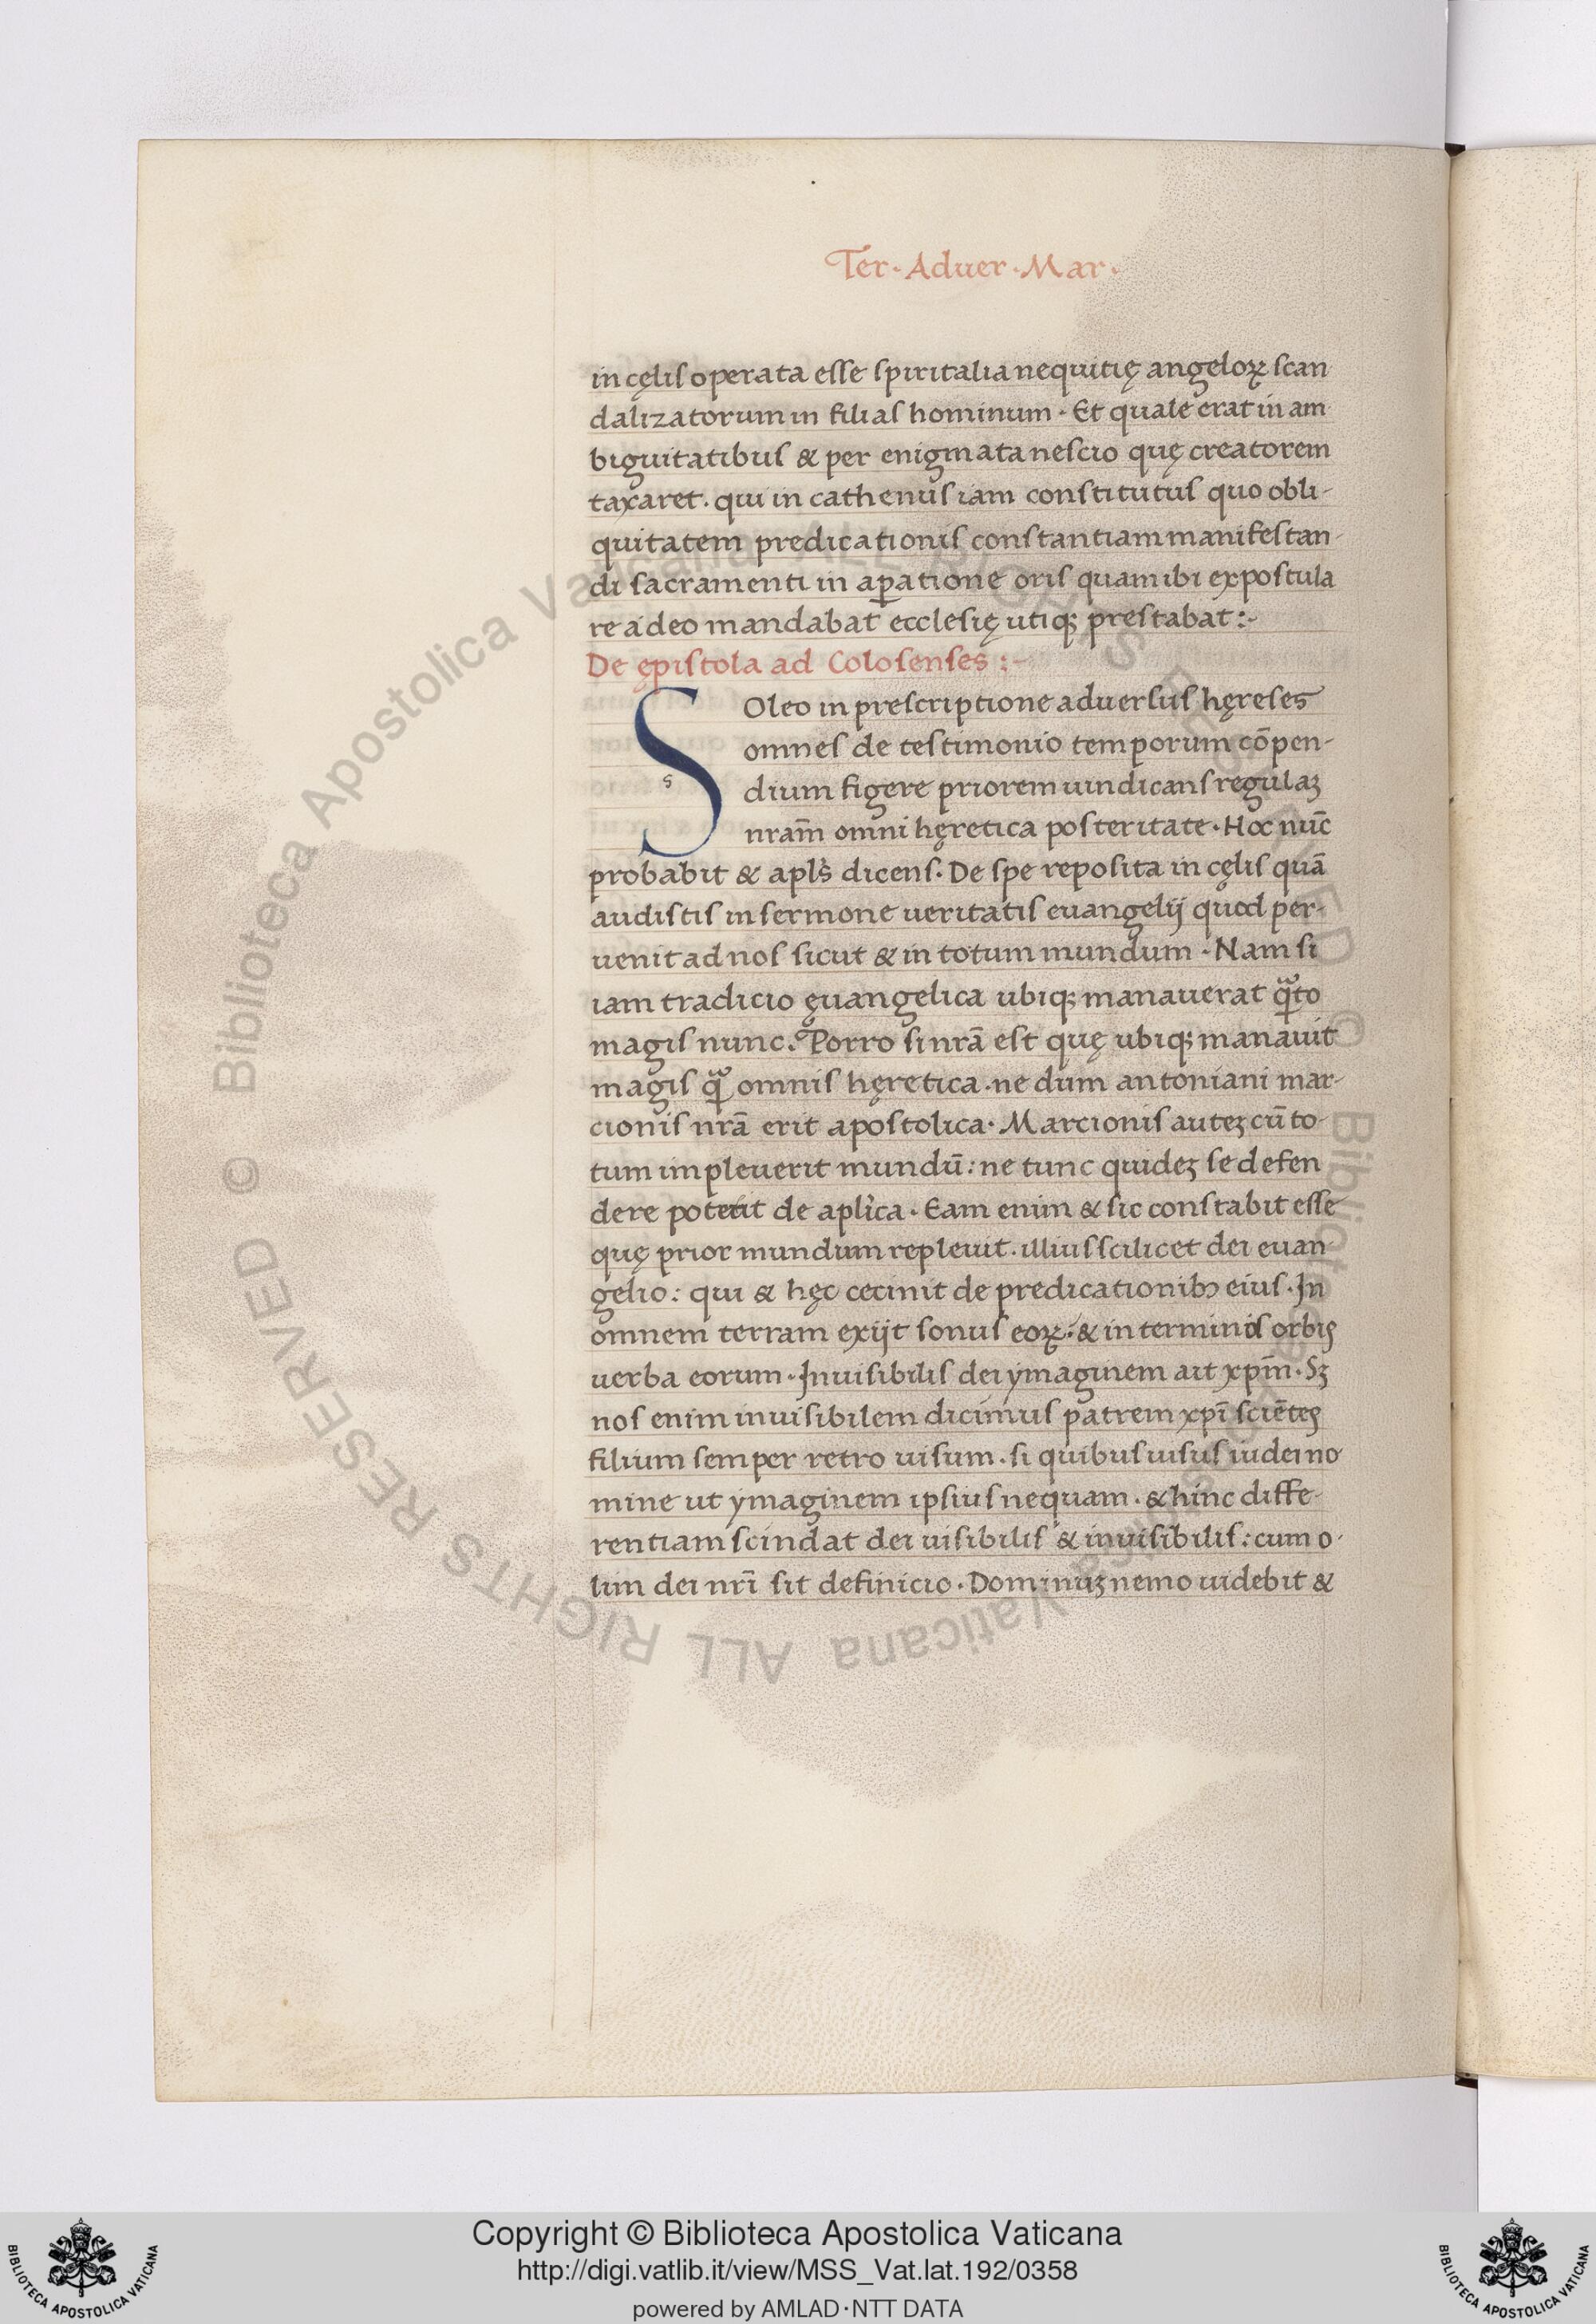 Ter · Aduer · Mar ·
in cęlis operata esse spiritalia nequitię angeloꝝ scan
dalizatorum in filias hominum · Et quale erat in am
biguitatibus & per enigmata nescio quę creatorem
taxaret · qui in cathenus iam constitutus quo obli-
quitatem predicationis constantiam manifestan-
di sacramenti in aꝑatione oris quam ibi expostula
re a deo mandabat ecclesię utiqꝫ prestabat :-
De ępistola ad Colosenses :-
SOleo in prescriptione aduersus hęreses
s
omnes de testimonio temporum cōpen-
dium figere priorem uindicans regulaꝫ
nram̄ omni hęretica posteritate · Hoc nūc
probabit & apls̓ dicens · De spe reposita in cęlis quā
audistis in sermone ueritatis euangelij quod per-
uenit ad nos sicut & in totum mundum · Nam si
iam tradicio ęuangelica ubiqꝫ manauerat qᷓto
magis nunc · Porro si nrā est quę ubiqꝫ manauit
magis qᷓ omnis hęretica · ne dum antoniani mar-
cionis nrā erit apostolica · Marcionis auteꝫ cū to-
tum impleuerit mundū : ne tunc quideꝫ se defen
dere poterit de apl̓ica · Eam enim & sic constabit esse
quę prior mundum repleuit · illius scilicet dei euan-
gelio : qui & hęc cecinit de predicationibꝫ eius · In
omnem terram exijt sonus eoꝝ : & in terminis orbis
uerba eorum · Inuisibilis dei ymaginem ait xpm̄ · Sꝫ
nos enim inuisibilem dicimus patrem xpī sciētes
filium semper retro uisum · si quibus uisus iu dei no
mine ut ymaginem ipsius nequam · & hinc diffe-
rentiam scindat dei uisibilis & inuisibilis : cum o-
lim dei nrī sit definicio · Dominuꝫ nemo uidebit &
© Biblioteca Apostolica Vaticana ALL RIGHTS RESERVED © Biblioteca Apostolica Vaticana ALL RIGHTS RESERVED
Copyright © Biblioteca Apostolica Vaticana
http://digi.vatlib.it/view/MSS_Vat.lat.192/0358
powered by AMLAD·NTT DATA
BIBLIOTECA APOSTOLICA VATICANA
BIBLIOTECA APOSTOLICA VATICANA